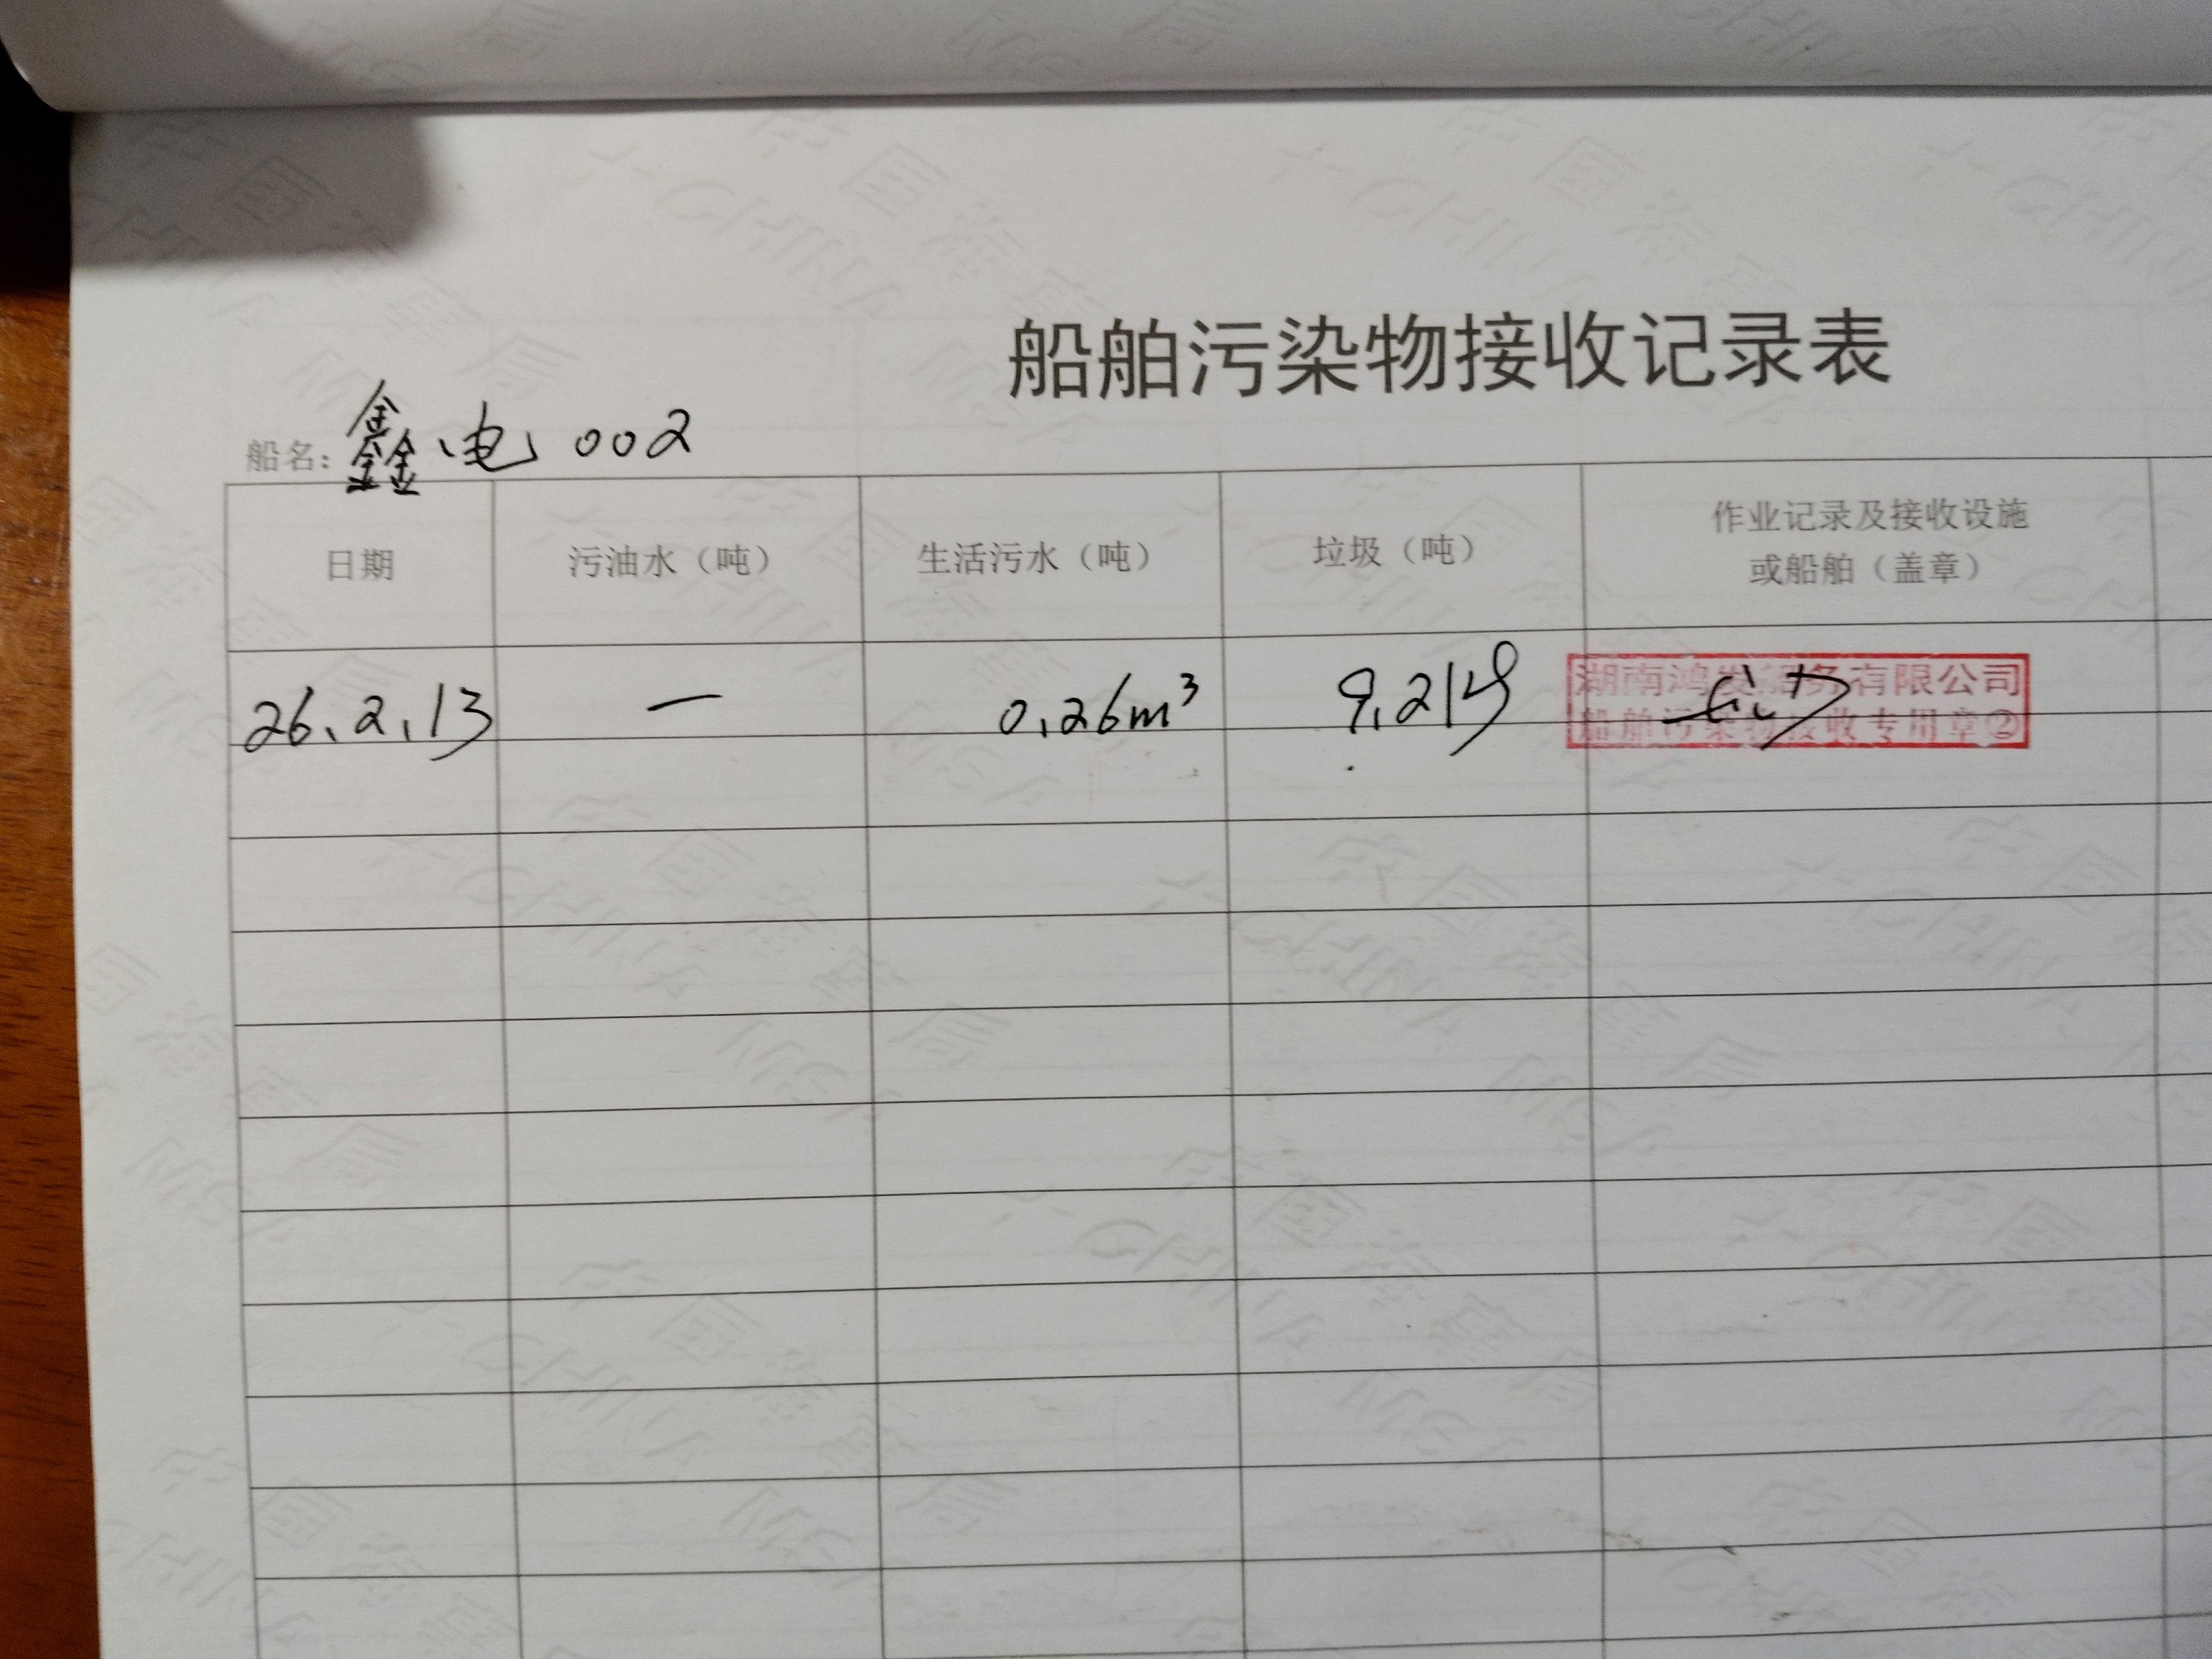 船舶污染物接收记录表
船名: 鑫电 002
日期 污油水（吨） 生活污水（吨） 垃圾（吨） 作业记录及接收设施
或船舶（盖章）
26.2.13 — 0.26m³ 9.21
湖南鸿发船务有限公司
船舶污染物接收专用章②
中国海事局
CHINA MSA